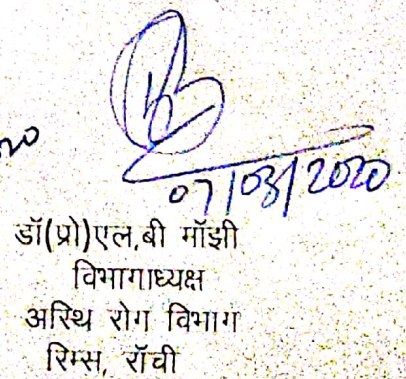 07/03/2020
डॉ(प्रो)एल.बी मॉझी
विभागाध्यक्ष
अस्थि रोग विभाग
रिम्स, रॉची